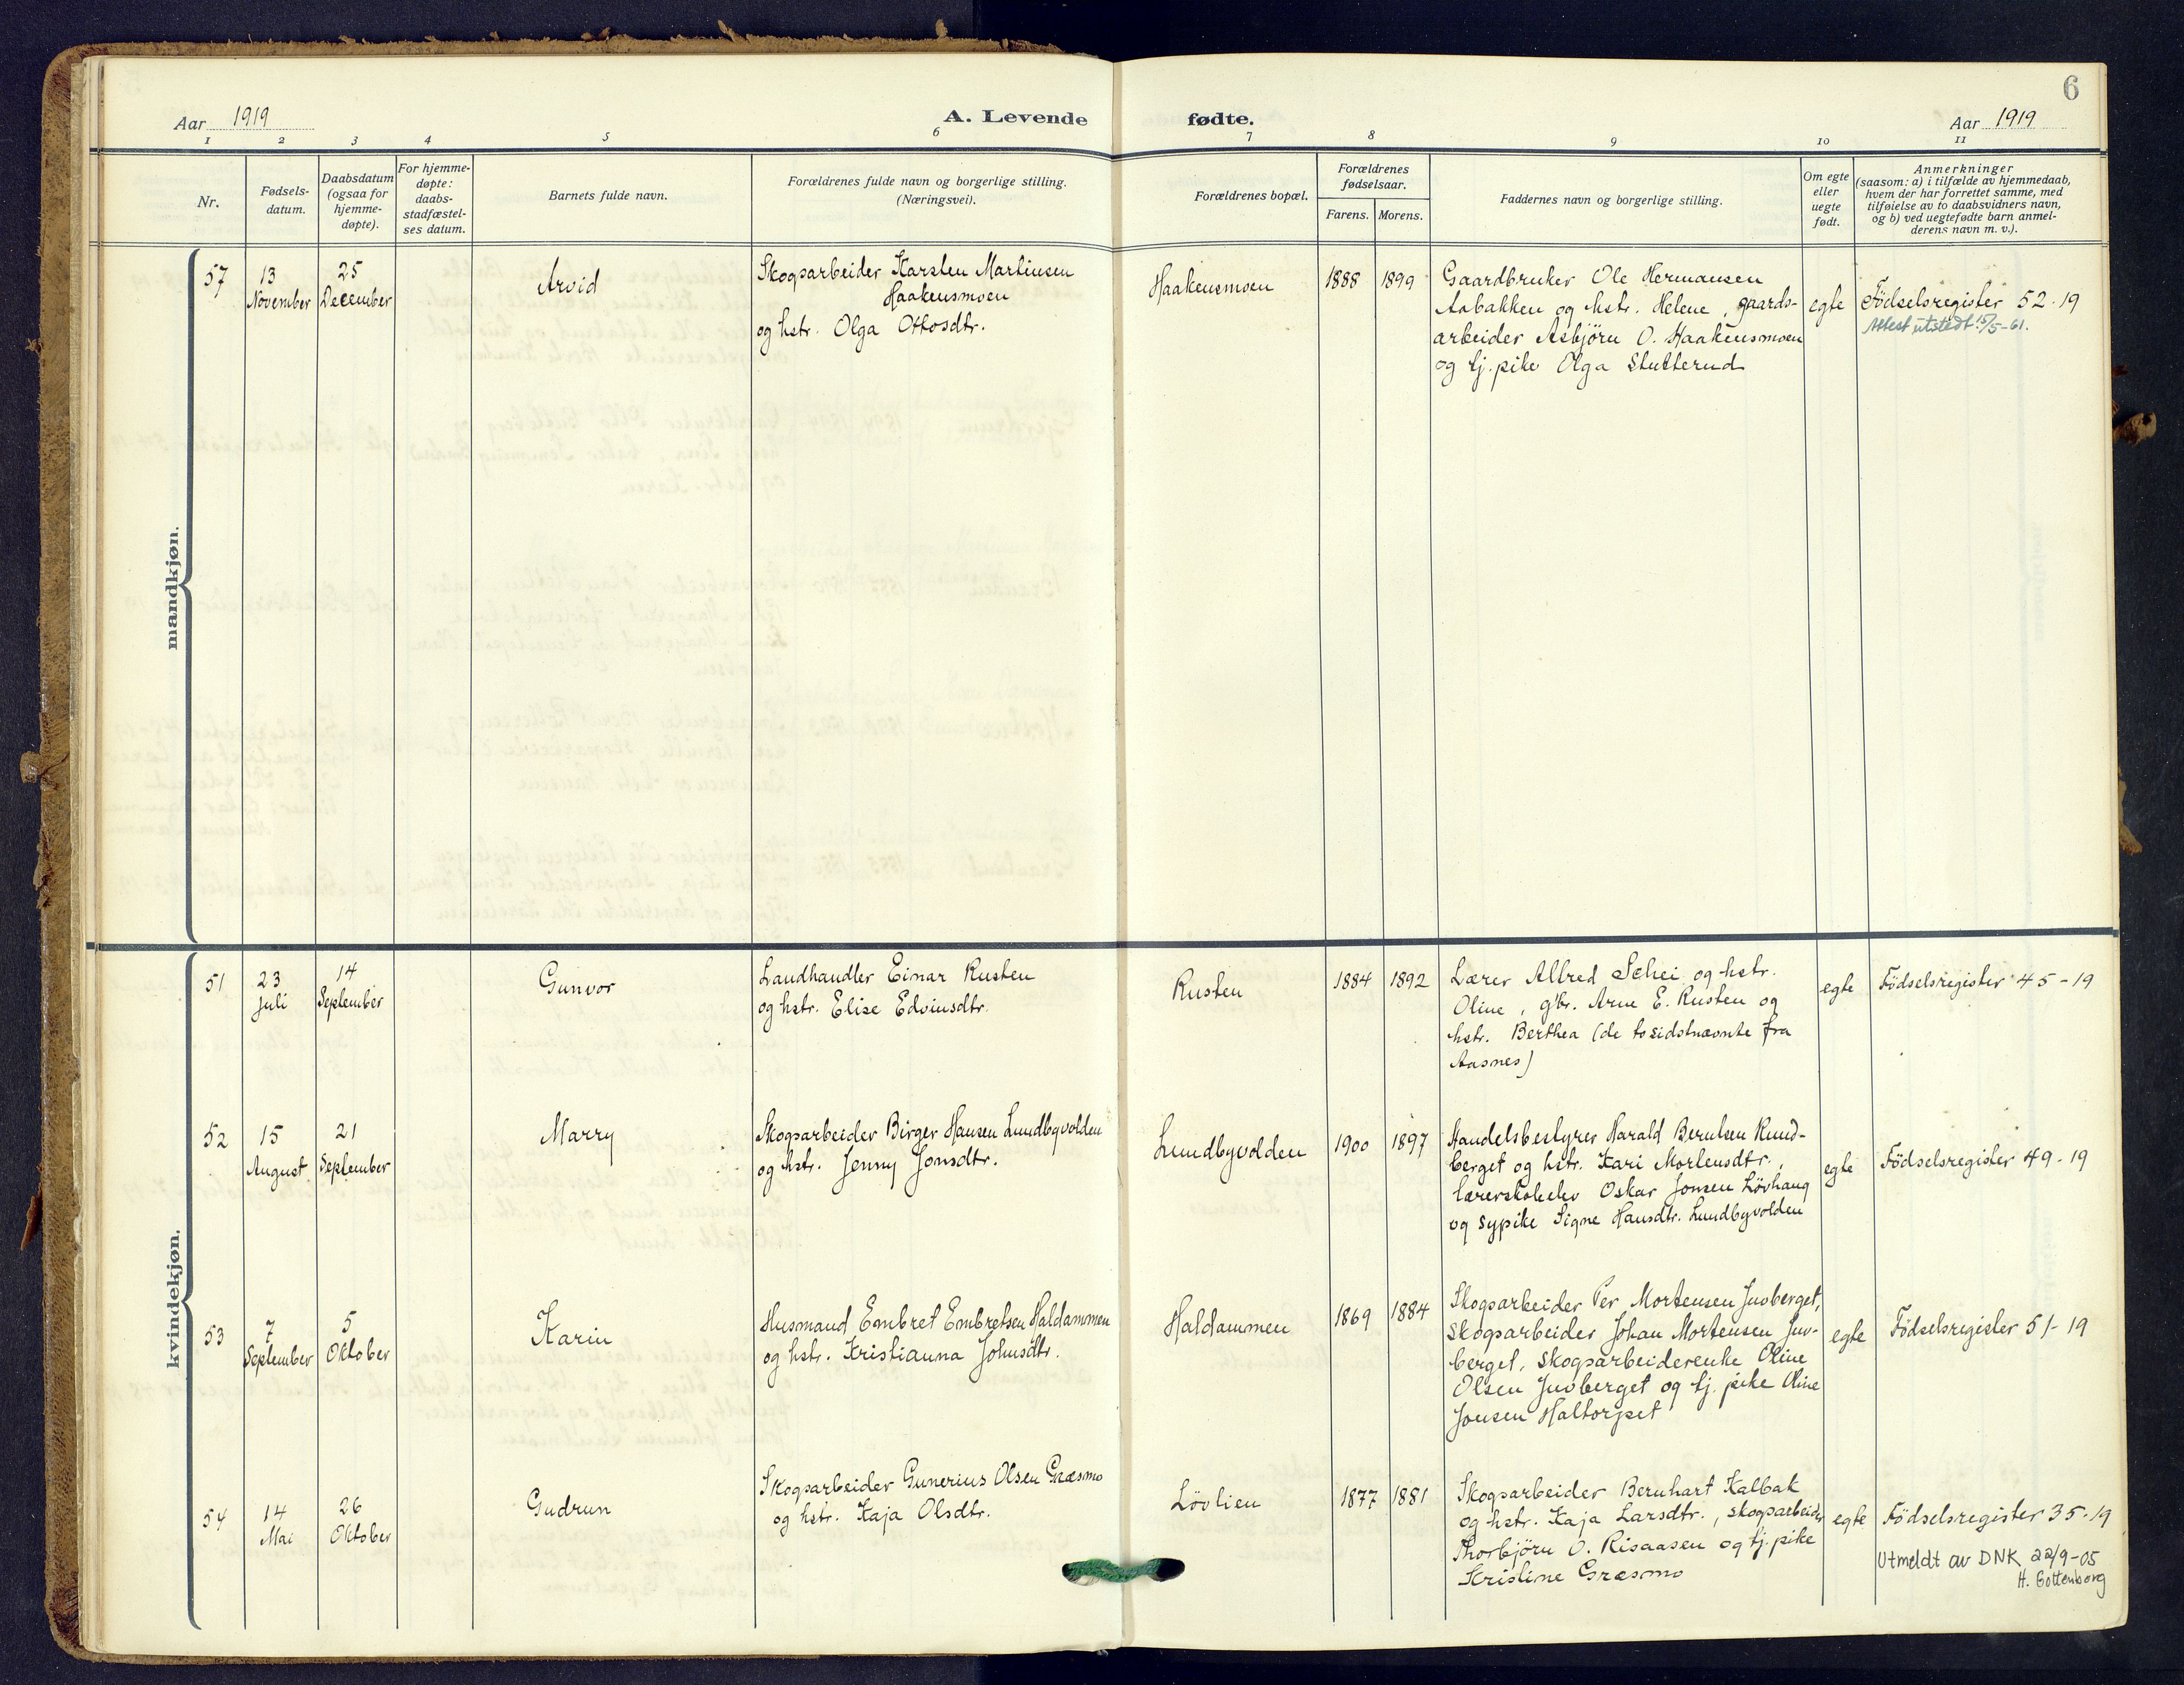 6
Aar 1919
A. Levende fødte.
Aar 1919
1 2 3 4 5 6 7 8 9 10 11
Nr.
Fødsels-
datum.
Daabsdatum
(ogsaa for
hjemme-
døpte).
For hjemme-
døpte:
daabs-
stadfæstel-
ses datum.
Barnets fulde navn.
Forældrenes fulde navn og borgerlige stilling.
(Næringsvei).
Forældrenes bopæl.
Forældrenes
fødselsaar.
Farens. Morens.
Faddernes navn og borgerlige stilling.
Om egte
eller
uegte
født.
Anmerkninger
(saasom: a) i tilfælde av hjemmedaab,
hvem der har forrettet samme, med
tilføielse av to daabsvidners navn,
og b) ved uegtefødte barn anmel-
derens navn m. v.).
mandkjøn.
57
13
November
25
December
Arvid
Skogsarbeider Karsten Martinsen
Haakensmoen
og hstr. Olga Ottosdtr.
Haakensmoen
1888
1899
Gaardbruker Ole Hermansen
Aabakken og hstr. Helene, gaards-
arbeider Asbjörn O. Haakensmoen
og tj. pike Olga Stutterud
egte
Födselsregister 52-19
Attest utstedt 15/5-61.
kvindekjøn.
51
23
Juli
14
September
Gunvor
Landhandler Einar Rusten
og hstr. Elise Edvinsdtr.
Rusten
1884
1892
Lærer Alfred Schei og hstr.
Oline, gbr. Arne E. Rusten og
hstr. Berthea (de to sidstnævnte fra
Aasnes)
egte
Födselsregister 45-19
52
15
August
21
September
Marry
Skogsarbeider Birger Hansen Lundbyvolden
og hstr. Jenny Jonsdtr.
Lundbyvolden
1900
1897
Handelsbestyrer Harald Berntsen Rund-
berget og hstr. Kari Mortensdtr.,
lærerskoleelev Oskar Jonsen Lövhaug
og sypike Signe Hansdtr. Lundbyvolden
egte
Födselsregister 49-19
53
7
September
5
Oktober
Karin
Husmand Embret Embretsen Haldammen
og hstr. Kristianna Johnsdtr.
Haldammen
1869
1884
Skogsarbeider Per Mortensen Juvberget,
skogsarbeider Johan Mortensen Juv-
berget, skogsarbeiderenke Oline
Olsen Juvberget og tj. pike Oline
Jonsen Haltorpet
egte
Födselsregister 51-19
54
14
Mai
26
Oktober
Gudrun
Skogsarbeider Gunerius Olsen Græsmo
og hstr. Kaja Olsdtr.
Lövlien
1877
1881
Skogsarbeider Bernhart Kalbak
og hstr. Kaja Larsdtr., skogsarbeider
Thorbjörn O. Risaasen og tj. pike
Kristine Græsmo
egte
Födselsregister 35-19
Utmeldt av DNK 22/9-05
H. Gottenborg